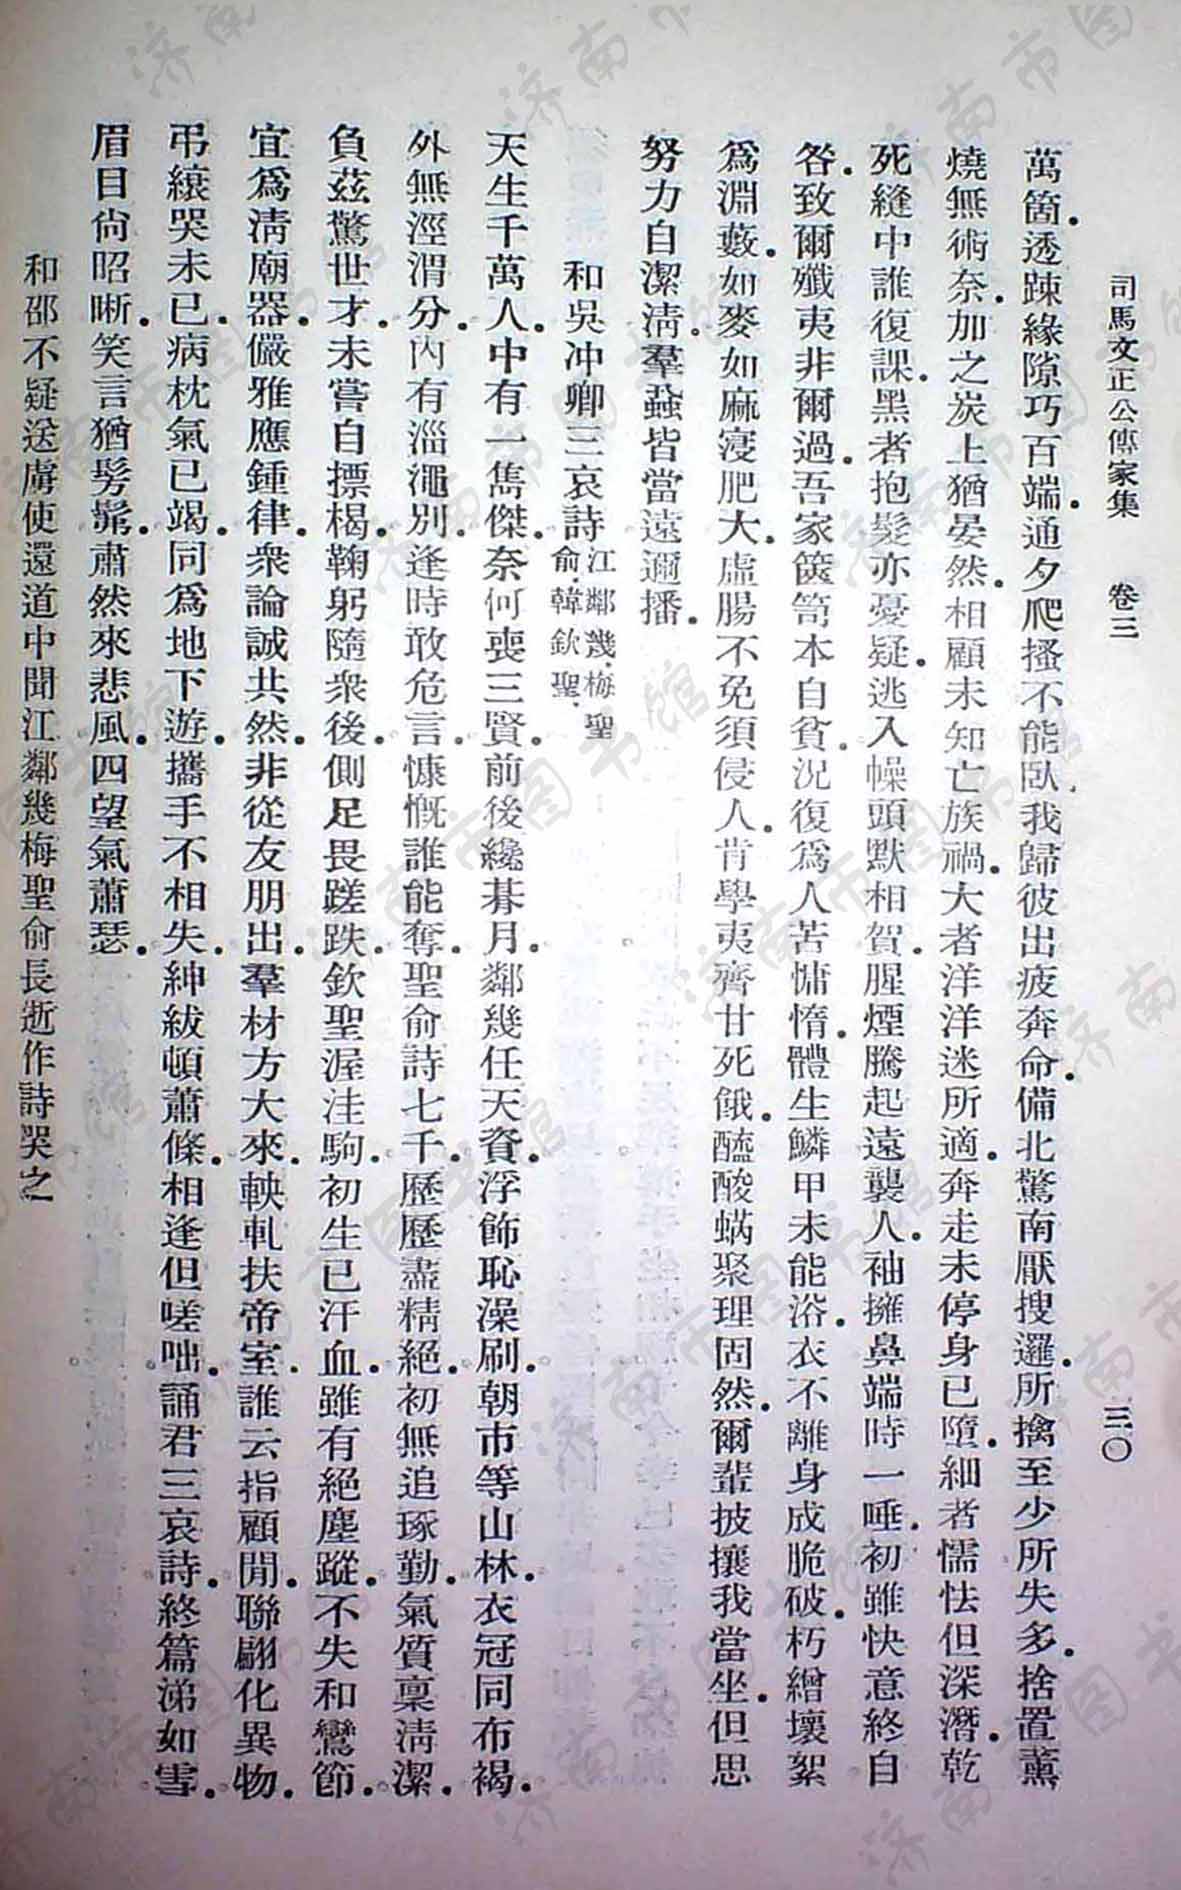 司馬文正公傳家集　卷三　三〇
萬箇.透踈緣隙巧百端.通夕爬搔不能臥.我歸彼出疲奔命.備北驚南厭搜邏.所擒至少所失多.捨置薰
燒無術奈.加之炭上猶晏然.相顧未知亡族禍.大者洋洋迷所適.奔走未停身已墮.細者懦怯但深潛.乾
死縫中誰復課.黑者抱髮亦憂疑.逃入幧頭默相賀.腥煙騰起遠襲人.袖擁鼻端時一唾.初雖快意終自
咎.致爾殲夷非爾過.吾家篋笥本自貧.況復爲人苦慵惰.體生鱗甲未能浴.衣不離身成脆破.朽繒壞絮
爲淵藪.如麥如麻寖肥大.虛腸不免須侵人.肯學夷齊甘死餓.醯酸蜹聚理固然.爾輩披攘我當坐.但思
努力自潔淸.羣蝨皆當遠邇播.
和吳冲卿三哀詩江鄰幾.梅聖俞.韓欽聖.
天生千萬人.中有一雋傑.奈何喪三賢.前後纔朞月.鄰幾任天資.浮飾恥澡刷.朝市等山林.衣冠同布褐.
外無涇渭分.內有淄澠別.逢時敢危言.慷慨誰能奪.聖俞詩七千.歷歷盡精絕.初無追琢勤.氣質稟淸潔.
負茲驚世才.未嘗自摽楬.鞠躬隨衆後.側足畏蹉跌.欽聖渥洼駒.初生已汗血.雖有絕塵蹤.不失和鸞節.
宜爲淸廟器.儼雅應鍾律.衆論誠共然.非從友朋出.羣材方大來.軮軋扶帝室.誰云指顧閒.聯翩化異物.
弔縗哭未已.病枕氣已竭.同爲地下遊.攜手不相失.紳紱頓蕭條.相逢但嗟咄.誦君三哀詩.終篇涕如雪.
眉目尙昭晰.笑言猶髣髴.肅然來悲風.四望氣蕭瑟.
和邵不疑送虜使還道中聞江鄰幾梅聖俞長逝作詩哭之